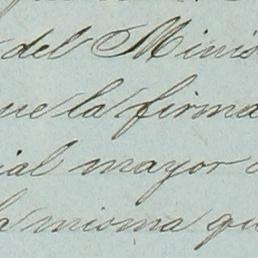 del Minis
que la firma
ial mayor d
la misma qu